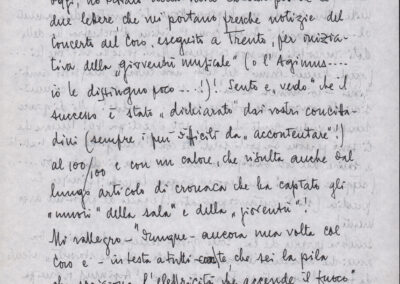 due lettere, che mi portano fresche notizie del
Concerto del Coro, eseguito a Trento, per inizia-
tiva della "gioventù musicale" (o l'Agimus....
io le distinguo poco ...!)! Sento e "vedo" che il
successo è stato "dichiarato" dai vostri concitta-
dini (sempre i più difficili da "accontentare"!)
al 100/100 e con un calore, che risulta anche dal
lungo articolo di cronaca che ha captato gli
"umori" della sala" e della "gioventù"!
Mi rallegro - dunque - ancora una volta col
Coro e - in testa a tutti - te che sei la pila
l'elettricità che accende il fuoco"